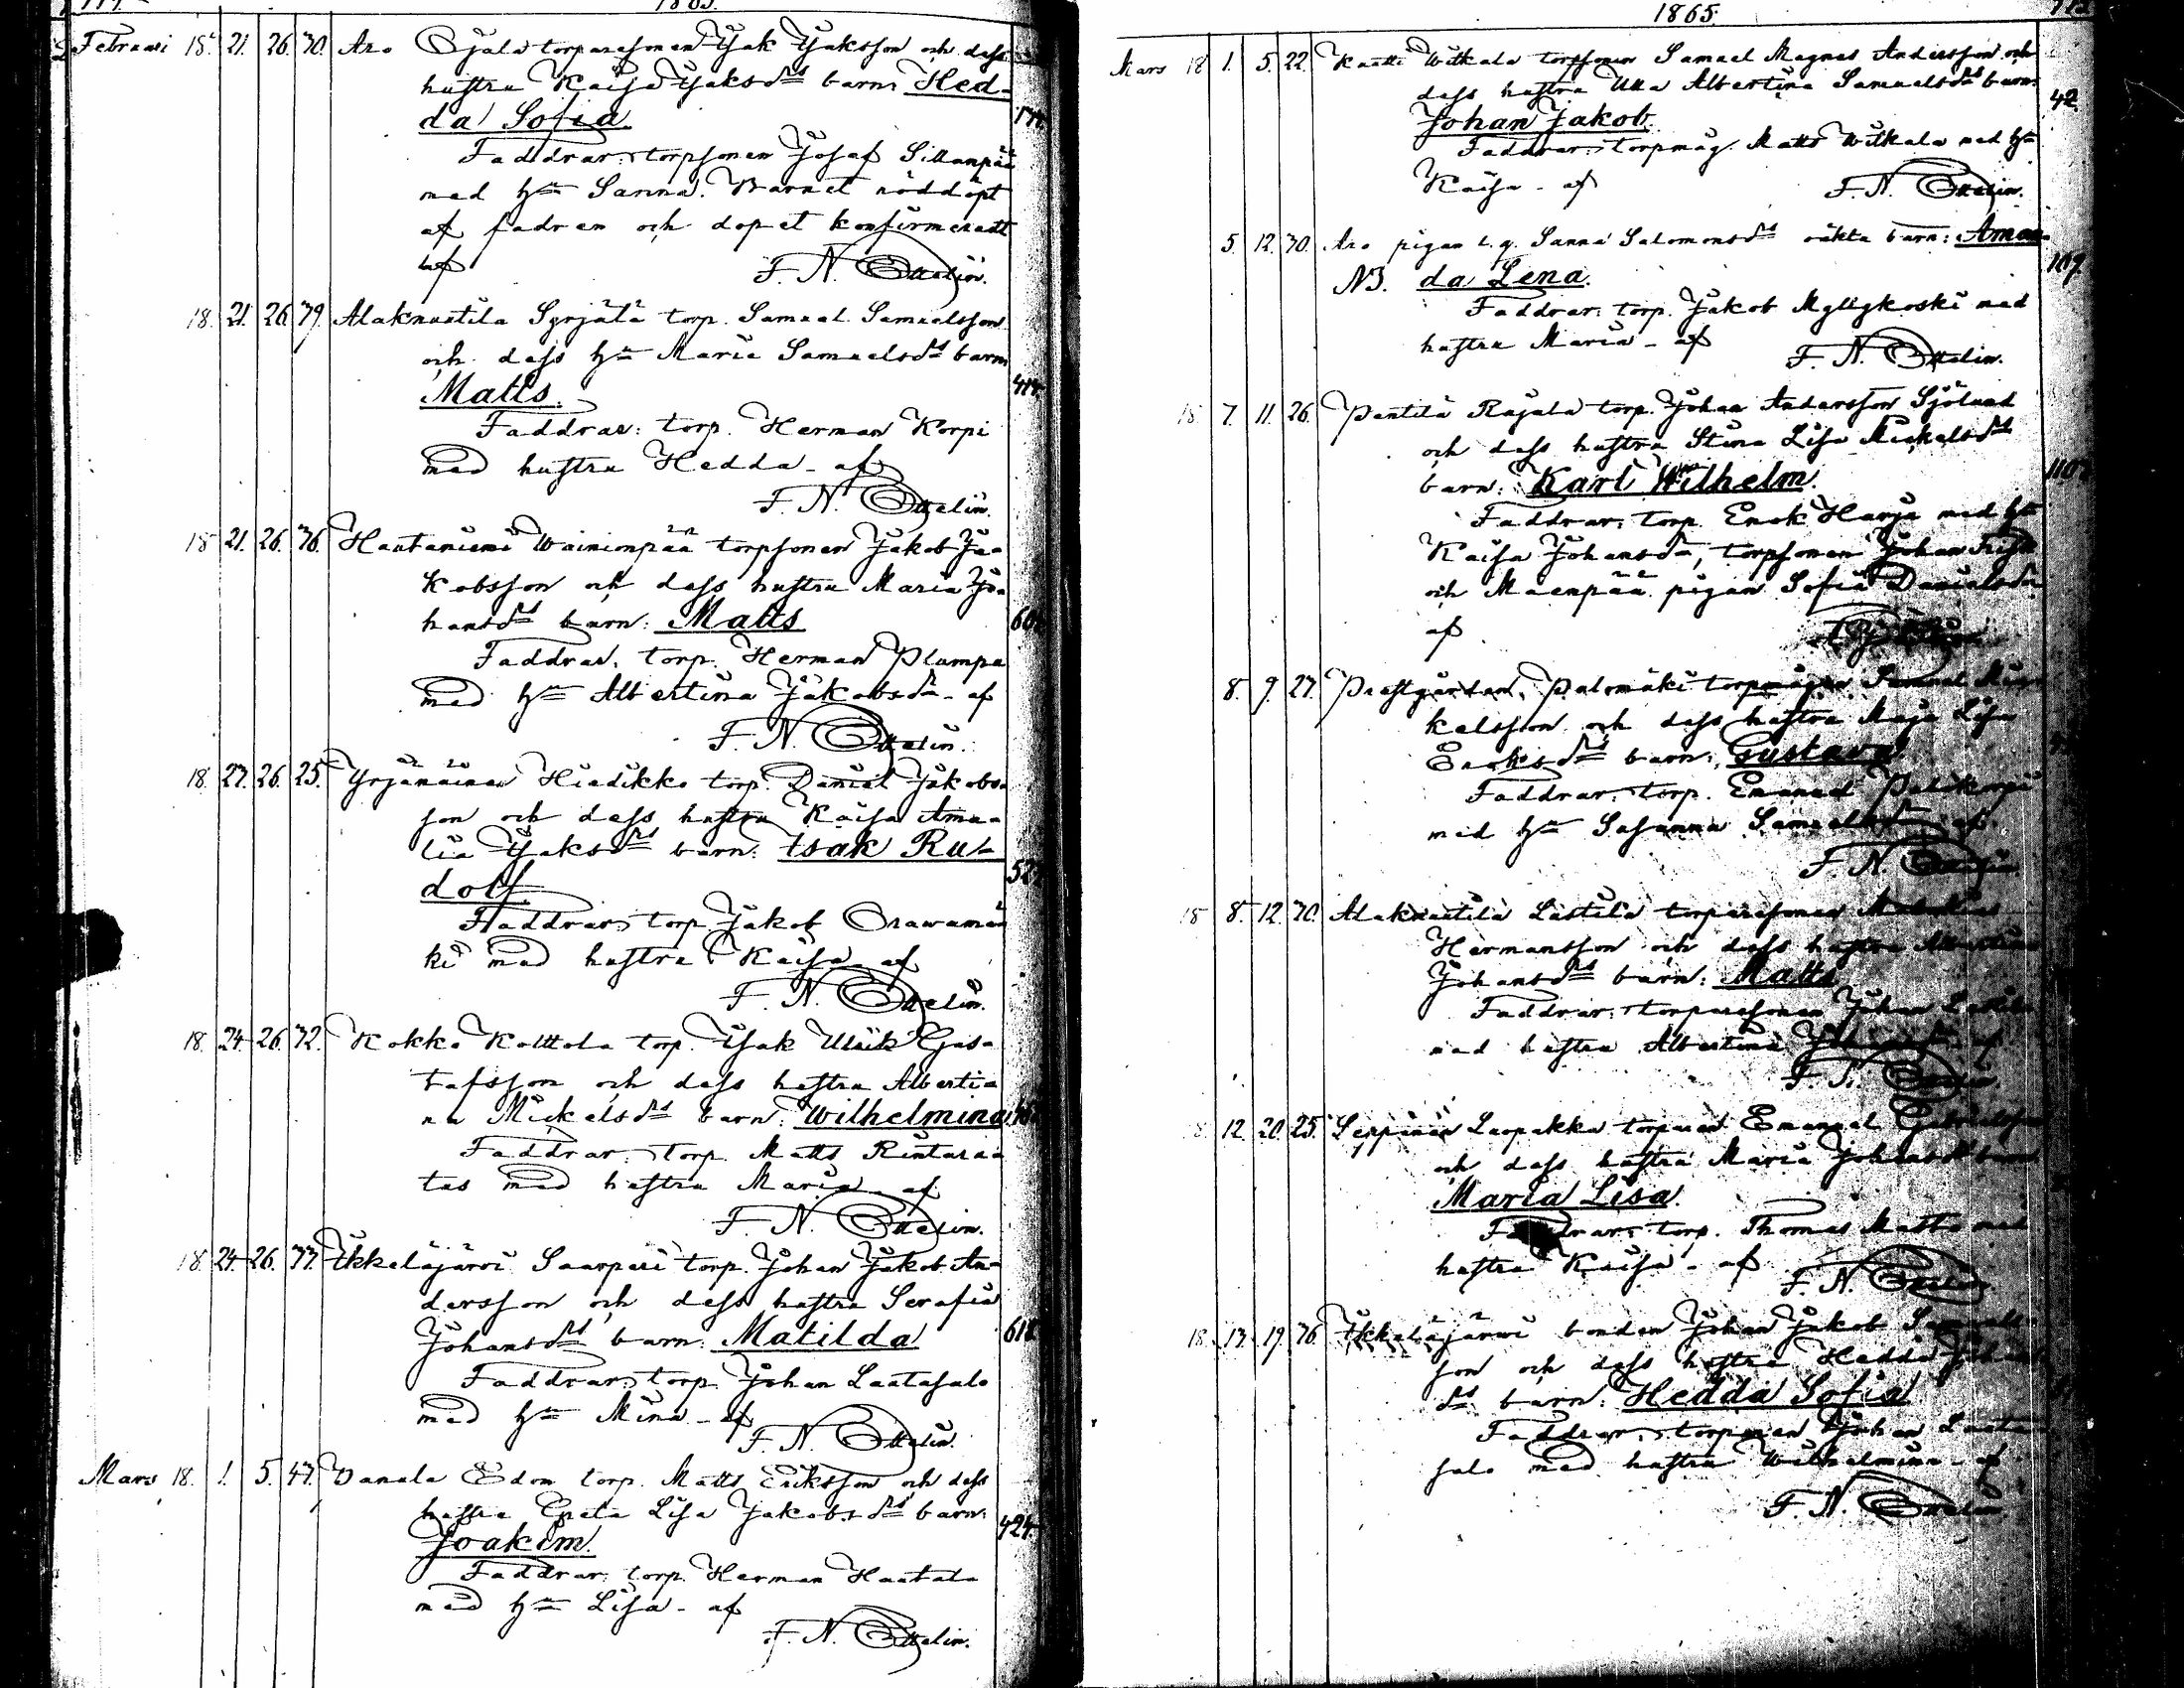 1865.
Februari 18. 21. 26. 30. Aro Ojala torparesonen Isak Isaksson och dess
hustru Kaisa Isaksdrs barn: Hed-
da Sofia.
Faddrar: torpsonen Josef Sillanpää
med hu Sanna. Barnet nöddöpt
af fadren och dopet konfirmeradt
af F. N. Ottelin.
18. 21. 26. 39. Alaknuutila Syrjälä torp. Samuel Samuelsson
och dess hu Maria Samuelsdrs barn
Matts.
Faddrar: torp. Herman Korpi
med hustru Hedda - af
F. N. Ottelin.
18 21. 26. 36. Hautaniemi Wainionpää torpsonen Jakob Ja-
kobsson och dess hustru Maria Jo-
hansdrs barn: Matts
Faddrar: torp. Herman Plumpu
med hu Albertina Jakobsdr - af
F. N. Ottelin.
18. 27. 26. 25. Yrjänäinen Hiedikko torp. Daniel Jakobs-
son och dess hustru Kaisa Ama-
lia Isaksdrs barn: Isak Ru-
dolf
Faddrar: torp. Jakob Orawamä-
ki med hustru Kaisa - af
F. N. Ottelin.
18. 24. 26. 32. Kokko Kolttola torp. Isak Ulrik Gus-
tafsson och dess hustru Alberti-
na Mickelsdrs barn: Wilhelmina
Faddrar: torp. Matts Rintaraa-
tas med hustru Maria - af
F. N. Ottelin.
18. 24. 26. 37. Ikkeläjärvi Saarpuri torp. Johan Jakob An-
dersson och dess hustru Serafia
Johansdrs barn: Matilda 618
Faddrar: torp. Johan Laatasalo
med hu Mina - af
F. N. Ottelin.
Mars 18. 1. 5. 47. Panula Edom torp. Matts Eriksson och dess
hustru Greta Lisa Jakobsdrs barn: 424
Joakim.
Faddrar: torp. Herman Hautala
med hu Lisa - af
F. N. Ottelin.
1865.
Mars 18 1. 5. 22. Knuuti Witkala torpsonen Samuel Magnus Andersson och
dess hustru Ulla Albertina Samuelsdrs barn: 42.
Johan Jakob.
Faddrar: torpmåg. Matts Witkala med hu
Kaisa - af F. N. Ottelin.
5. 12. 30. Aro pigan l. g. Sanna Salomonsdrs oäkta barn: Aman-
N3. da Lena. 109.
Faddrar: torp. Jakob Myllykoski med
hustru Maria - af
F. N. Ottelin.
18. 7. 11. 26. Pentilä Rajala torp. Johan Andersson Sjölund
och dess hustru Stina Lisa Mickelsdrs
barn: Karl Wilhelm. 110.
Faddrar: torp. Enok Harju med hu
Kaisa Johansdr, torpsonen Johan Frisk
och Mäenpää pigan Sofia Danielsdr
af
8. 9. 27. Prestgården, Palomäki torpmågen Samuel Mic-
kelsson och dess hustru Maja Lisa
Enoksdrs barn: Gustava
Faddrar: torp. Emanuel
med hu Susanna Samuelsdr af
F. N. Ottelin
18 8. 12. 30. Alaknuutila Lastila torparesonen
Hermansson och dess hustru Albertina
Johansdrs barn: Matts
Faddrar: torparesonen Johan
med hustru Albertina af
F. N. Ottelin
18. 12. 20. 25. Seppinen Larpakka torparen Emanuel Gabrielsson
och dess hustru Maria Johansdrs barn
Maria Lisa.
Faddrar: torp. Thomas Matts med
hustru Kaisa - af
F. N. Ottelin
18. 13. 19. 36. Ikkeläjärwi bonden Johan Jakob Samuels-
son och dess hustru Hedda Johans-
drs barn: Hedda Sofia
Faddrar: torparen Johan Laata-
salo med hustru Wilhelmina - af
F. N. Ottelin